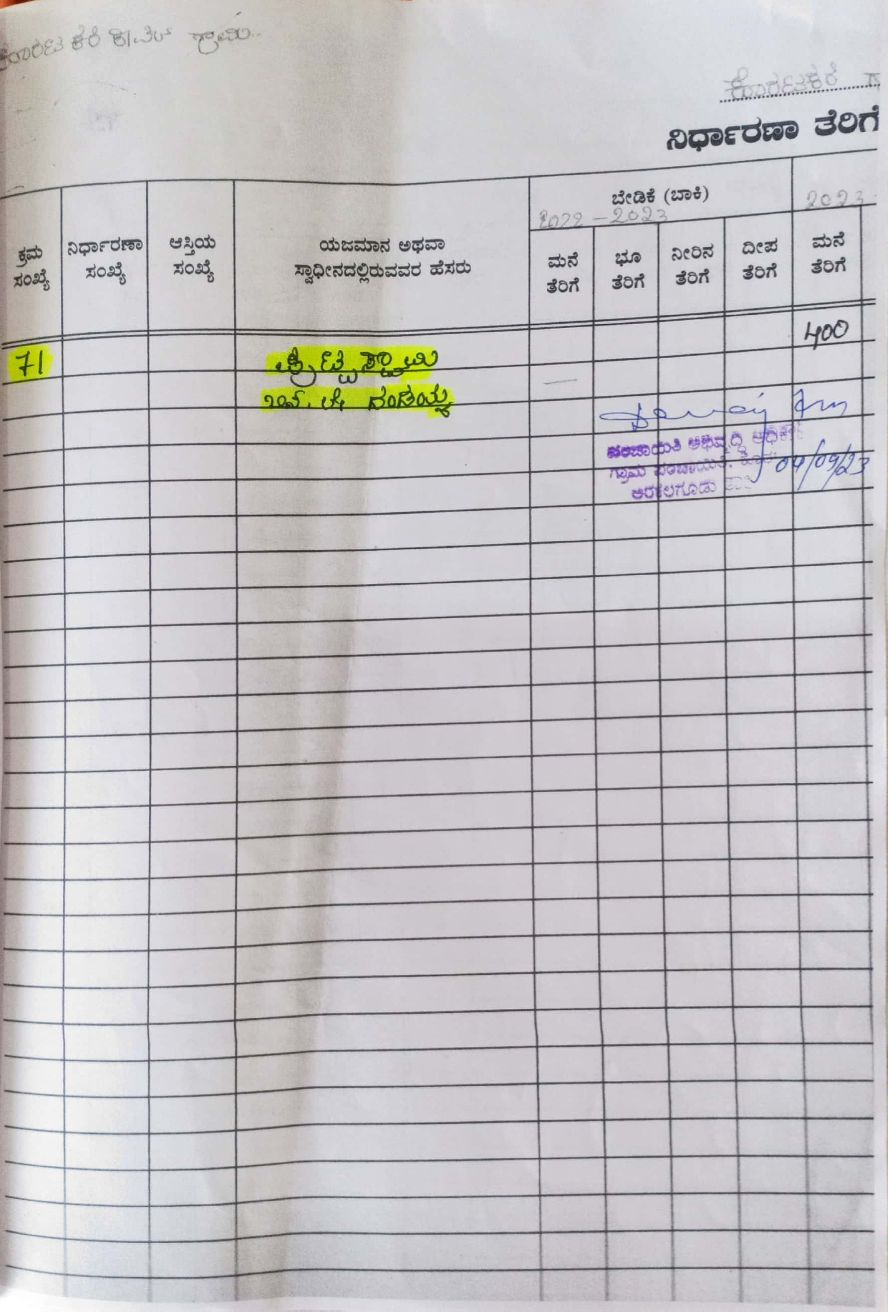 ಗ್ರಾಮ
ಕೊರಟಿಕೆರೆ
ನಿರ್ಧಾರಣಾ ತೆರಿಗೆ
ಕ್ರಮ ಸಂಖ್ಯೆ
ನಿರ್ಧಾರಣಾ ಸಂಖ್ಯೆ
ಆಸ್ತಿಯ ಸಂಖ್ಯೆ
ಯಜಮಾನ ಅಥವಾ
ಸ್ವಾಧೀನದಲ್ಲಿರುವವರ ಹೆಸರು
ಬೇಡಿಕೆ (ಬಾಕಿ)
2022-2023
2023-
ಮನೆ ತೆರಿಗೆ
ಭೂ ತೆರಿಗೆ
ನೀರಿನ ತೆರಿಗೆ
ದೀಪ ತೆರಿಗೆ
ಮನೆ ತೆರಿಗೆ
400
71
ಪಂಚಾಯತಿ ಅಭಿವೃದ್ಧಿ
ಗ್ರಾಮ ಪಂಚಾಯಿತಿ,
ಅರಕಲಗೂಡು
04/09/23